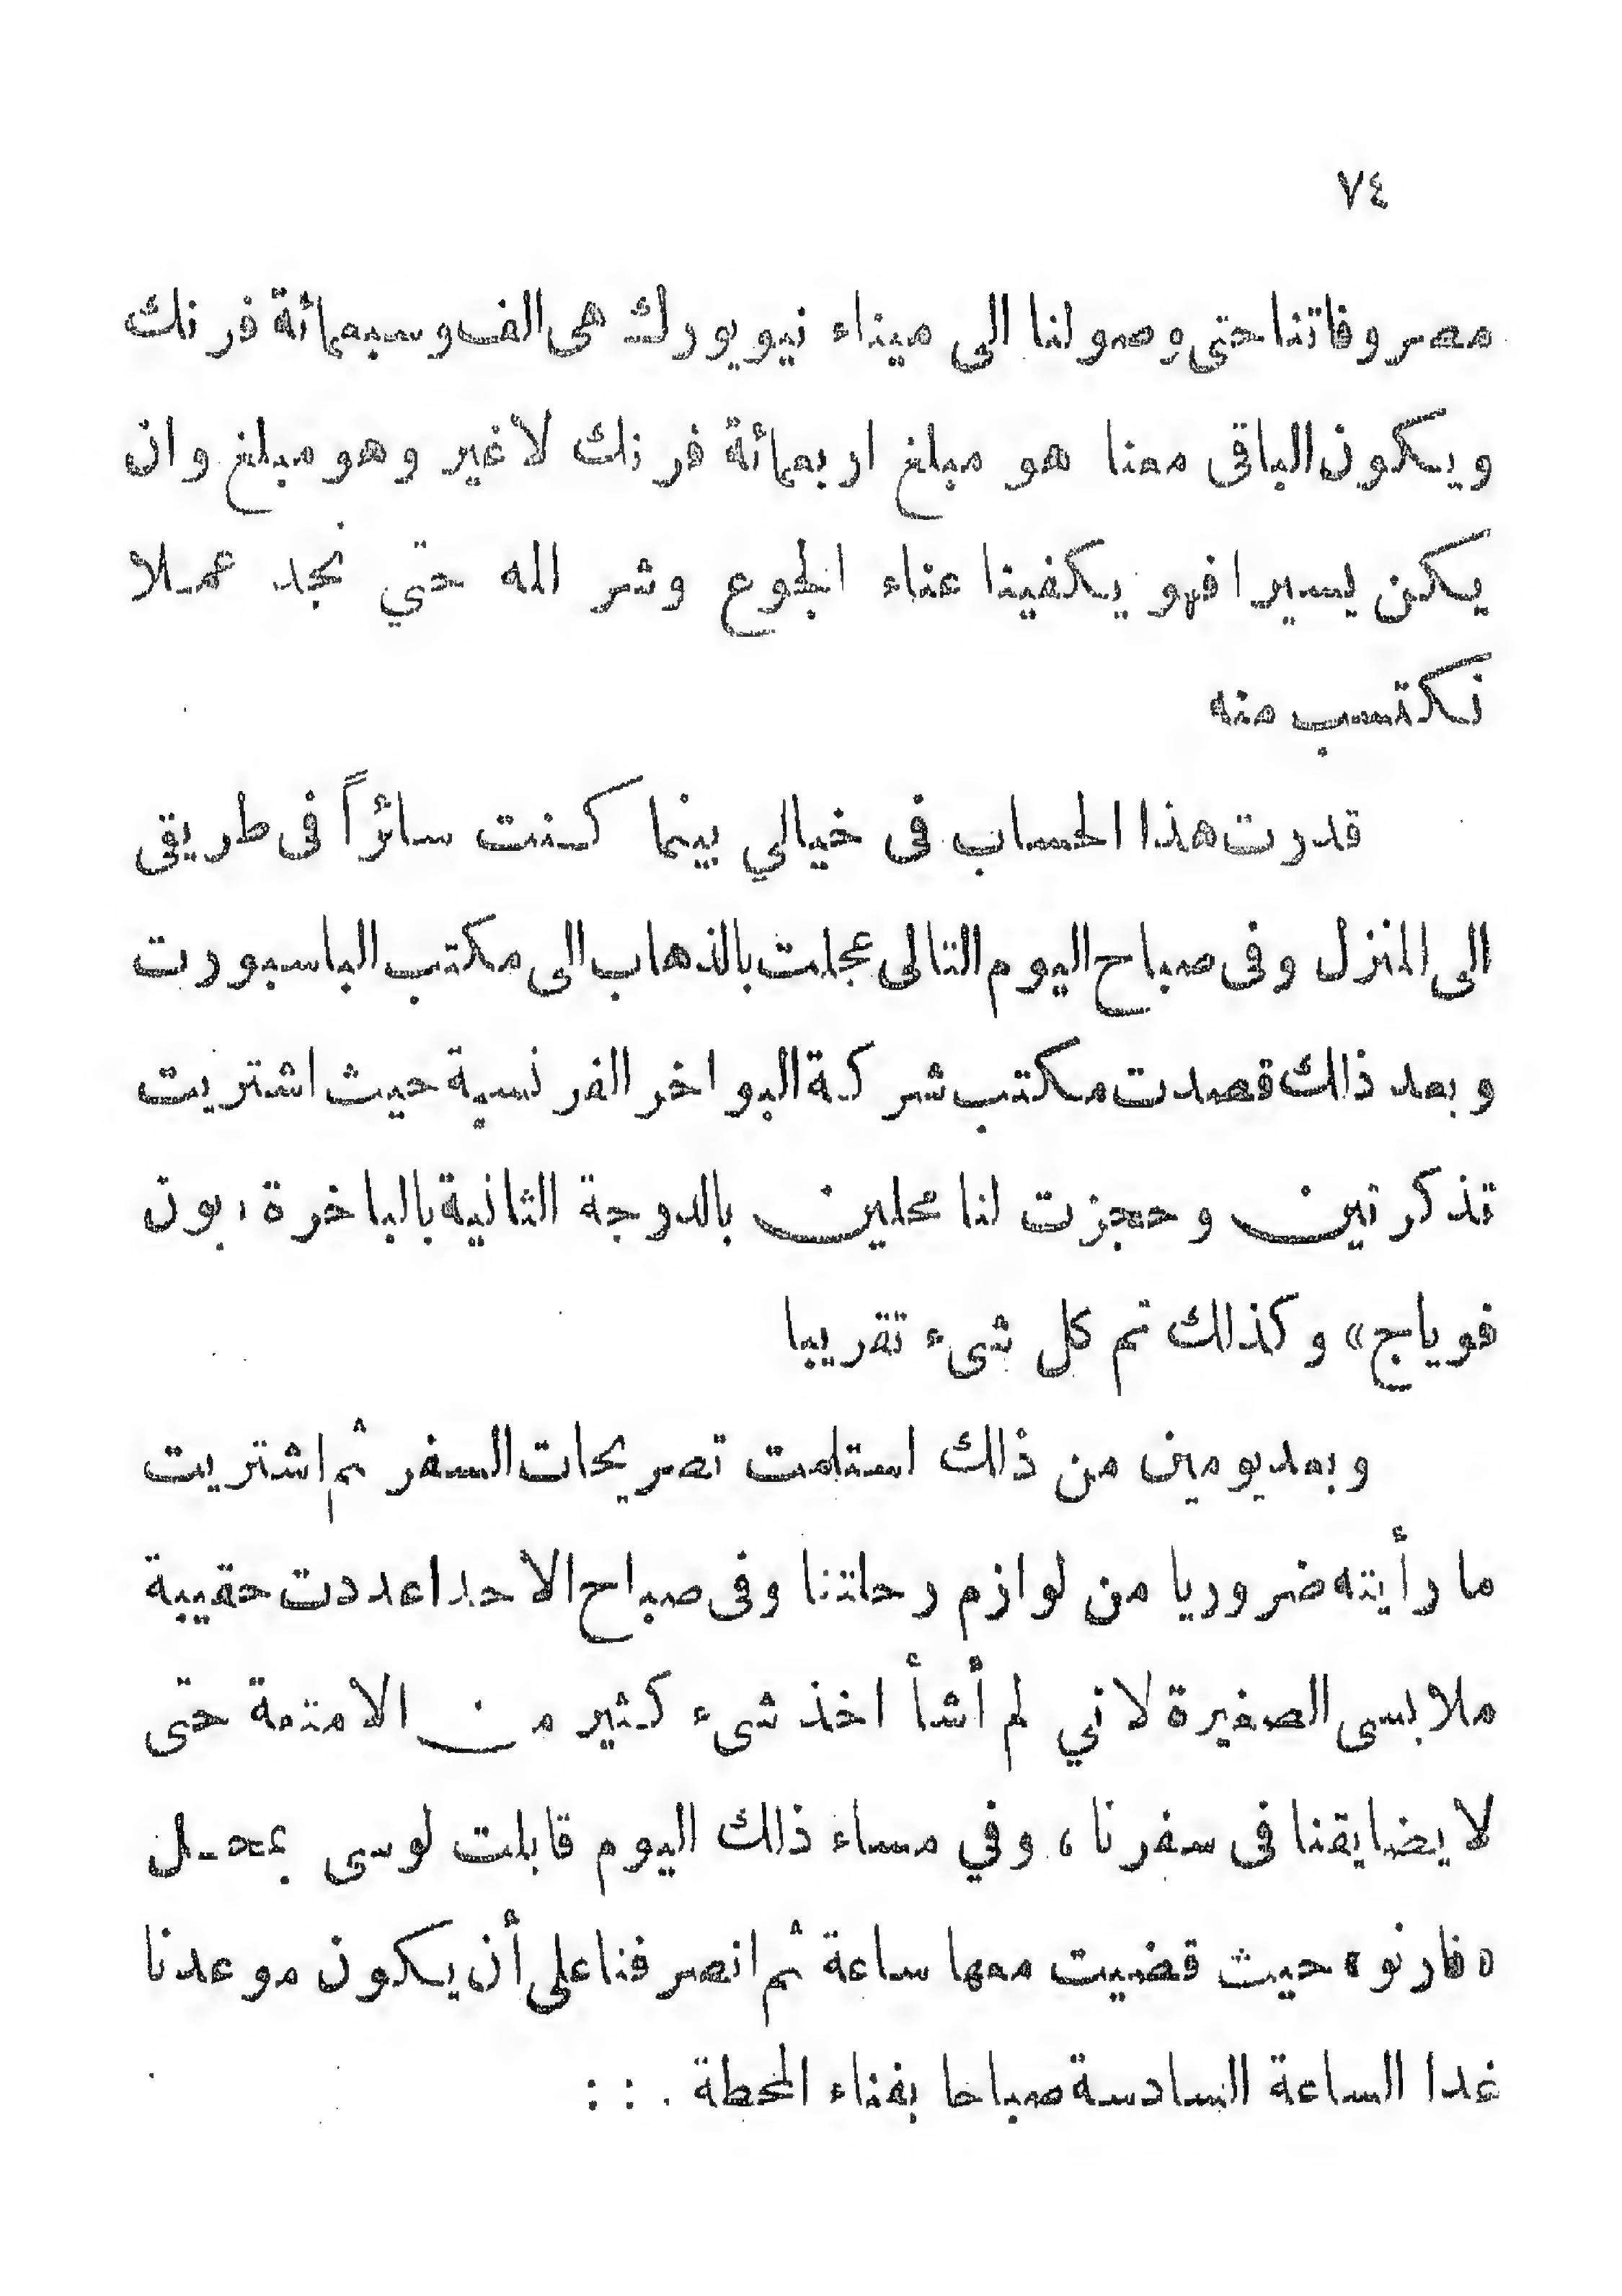 ٧٤
مصروفاتنا حتى وصولنا الى ميناء نيويورك هى الف وسبعمائة فرنك
ويكون الباقى معنا هو مبلغ اربعمائة فرنك لا غير وهو مبلغ وان
يكن يسيرا فهو يكفينا عناء الجوع وشر الله حتي نجد عملا
نكتسب منه
قدرت هذا الحساب فى خيالي بينما كنت سائراً فى طريقى
الى المنزل وفى صباح اليوم التالى عجلت بالذهاب الى مكتب الباسبورت
وبعد ذالك قصدت مكتب شركة البواخر الفرنسية حيث اشتريت
تذكرتين وحجزت لنا محلين بالدوجة الثانية بالباخرة «بون
فوياج» وكذالك تم كل شىء تقريبا
وبعد يومين من ذالك استلمت تصريحات السفر ثم اشتريت
ما رأيته ضروريا من لوازم رحلتنا وفى صباح الاحد اعددت حقيبة
ملابسى الصغيرة لاني لم أشأ اخذ شىء كثير من الامتعة حتى
لا يضايقنا فى سفرنا، وفي مساء ذالك اليوم قابلت لوسى بمحل
«فارنو» حيث قضيت معها ساعة ثم انصرفنا على أن يكون موعدنا
غدا الساعة السادسة صباحا بفناء المحطة . : :